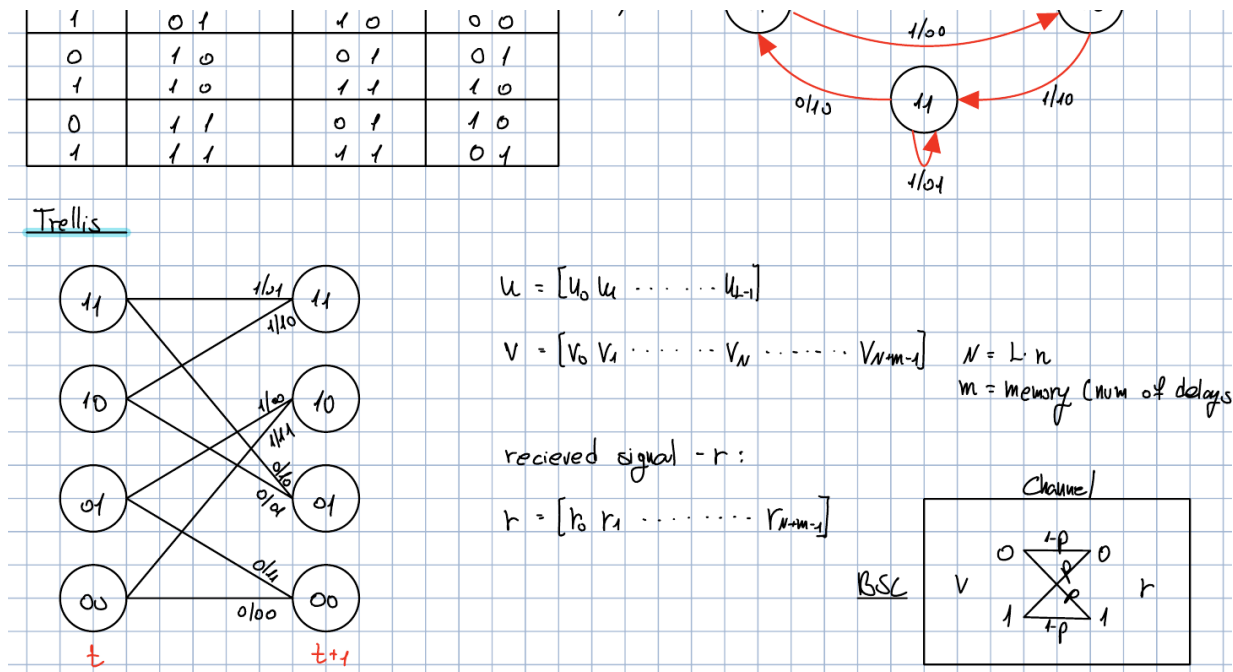 1 0 1 1 0 0 0
0 1 0 0 1 0 1
1 1 0 1 1 1 0
0 1 1 0 1 1 0
1 1 1 1 1 0 1
1/00
0/10
11
1/10
1/01
Trellis
11 1/01 11
1/10
10 1/00 10
1/11
01 0/10 01
0/01
0/11
00 0/00 00
t t+1
u = [u0 u1 ...... uL-1]
V = [V0 V1 ...... VN ...... VN+m-1] N = L·n
m = memory (num of delays
recieved signal - r :
r = [r0 r1 ........ rN+m-1]
Channel
BSC V 0 1-p 0 r
p
p
1 1-p 1